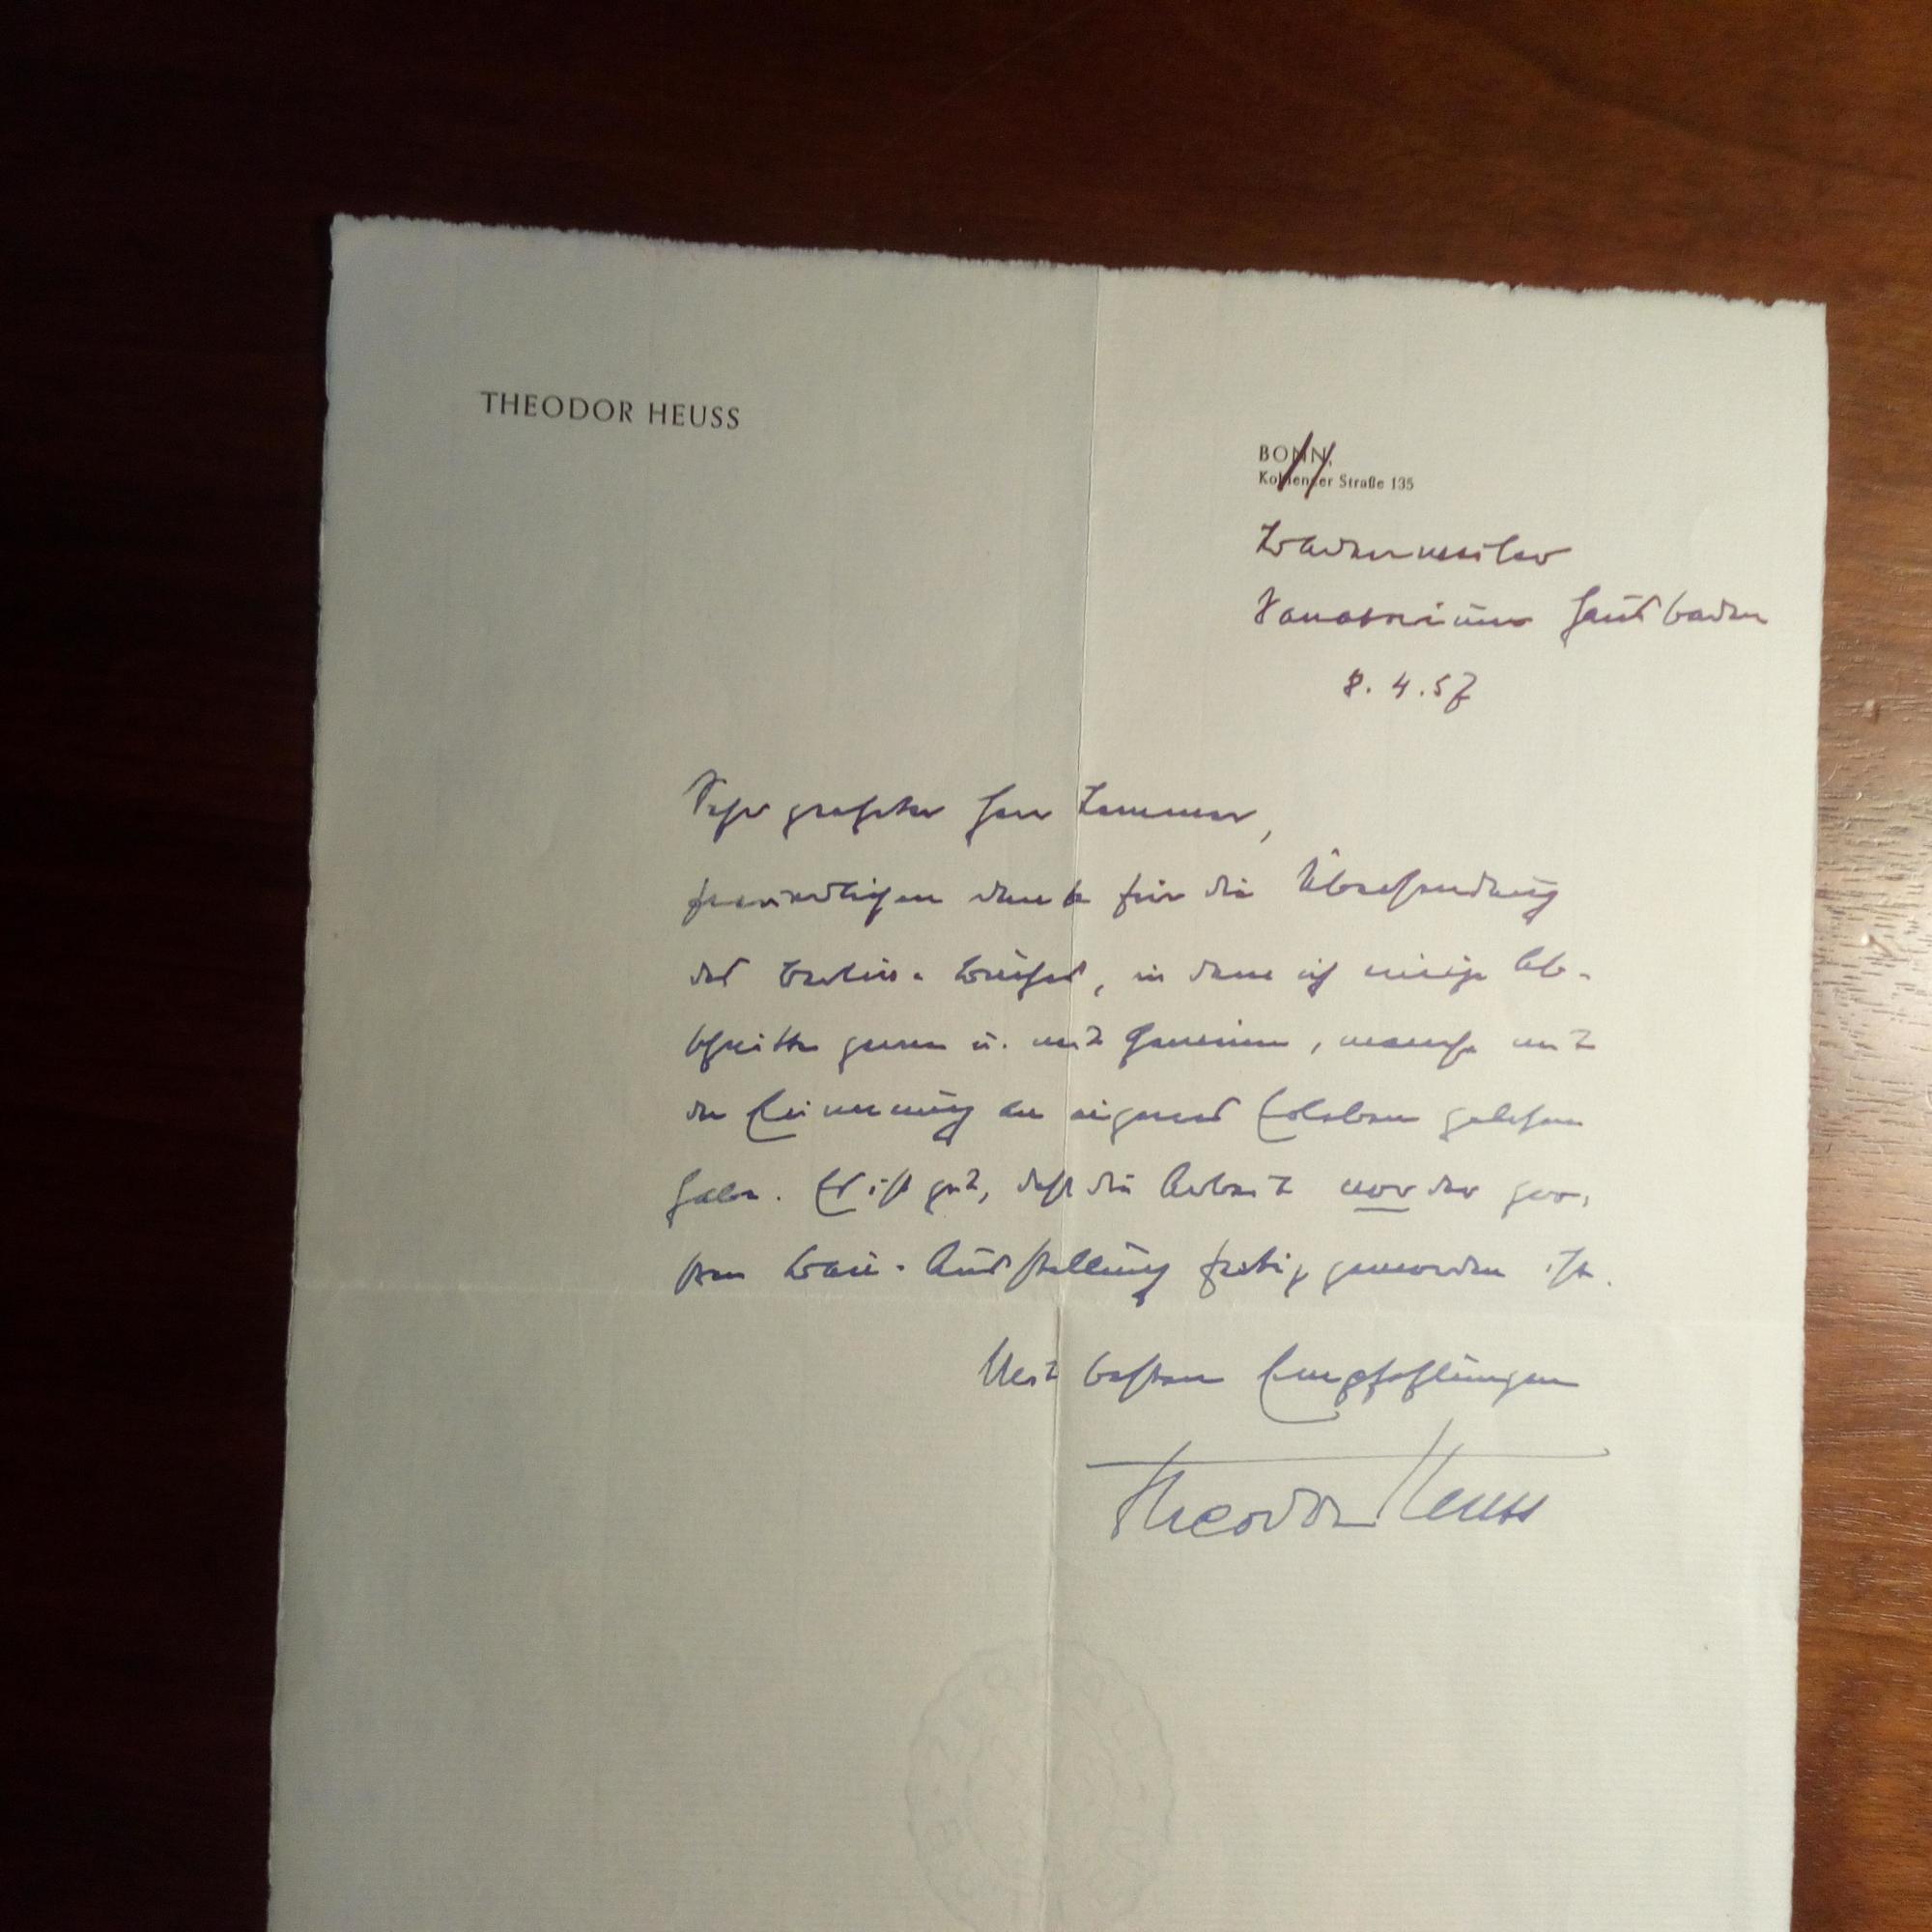 THEODOR HEUSS
BONN,
Koblenzer Straße 135
Badenweiler
Sanatorium Hausbaden
8. 4. 57
Sehr geehrter Herr
freundlichen Dank für die Übersendung
des Berlin-Buches, in dem ich einige Ab-
schnitte gerne u. mit Gewinn, manche mit
der Erinnerung an eigenes Erleben gelesen
habe. Es ist gut, daß die Arbeit vor der gros-
sen Bau-Ausstellung fertig geworden ist.
Mit besten Empfehlungen
Theodor Heuss